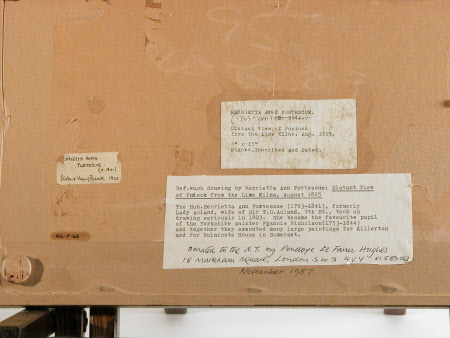 HENRIETTA ANNE FORTESCUE.
Distant View of Porlock
from the Lime Kilns, Aug. 1825.
Signed, Inscribed and Dated.
HENRIETTA ANNE
FORTESCUE
Distant View of Porlock,
Ref. wash drawing by Henrietta Ann Fortescue: Distant View
of Porlock from the Lime Kilns, August 1825
The Hon. Henrietta Ann Fortescue (1763-1841), formerly
Lady Acland, wife of Sir T.D. Acland, 9th Bt., took up
drawing seriously in 1803. She became the favourite pupil
of the Yorkshire painter Francis Nicholson (1753-1844)
and together they executed many large paintings for Killerton
and for Holnicote House in Somerset.
Donated to the N.T. by Penelope Le Fanu Hughes
18 Markham Square, London S.W.3 4UY
November 1987.